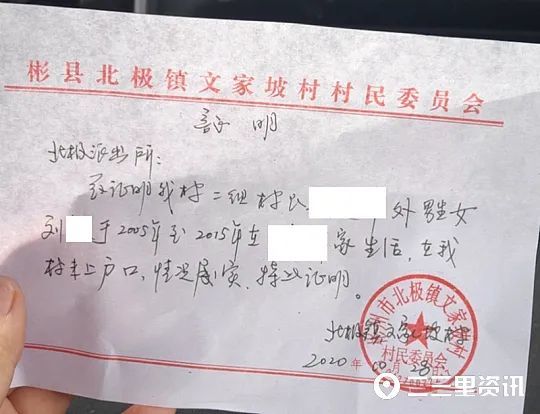 彬县北极镇文家坡村村民委员会
证明
北极派出所:
兹证明我村二组村民 外男女
刘 于2005年至2015年在 家生活,在我
村未上户口,情况属实,特此证明。
北极镇文家坡村
2020年10月28日
州市北极镇文家坡村
村民委员会
二三里资讯